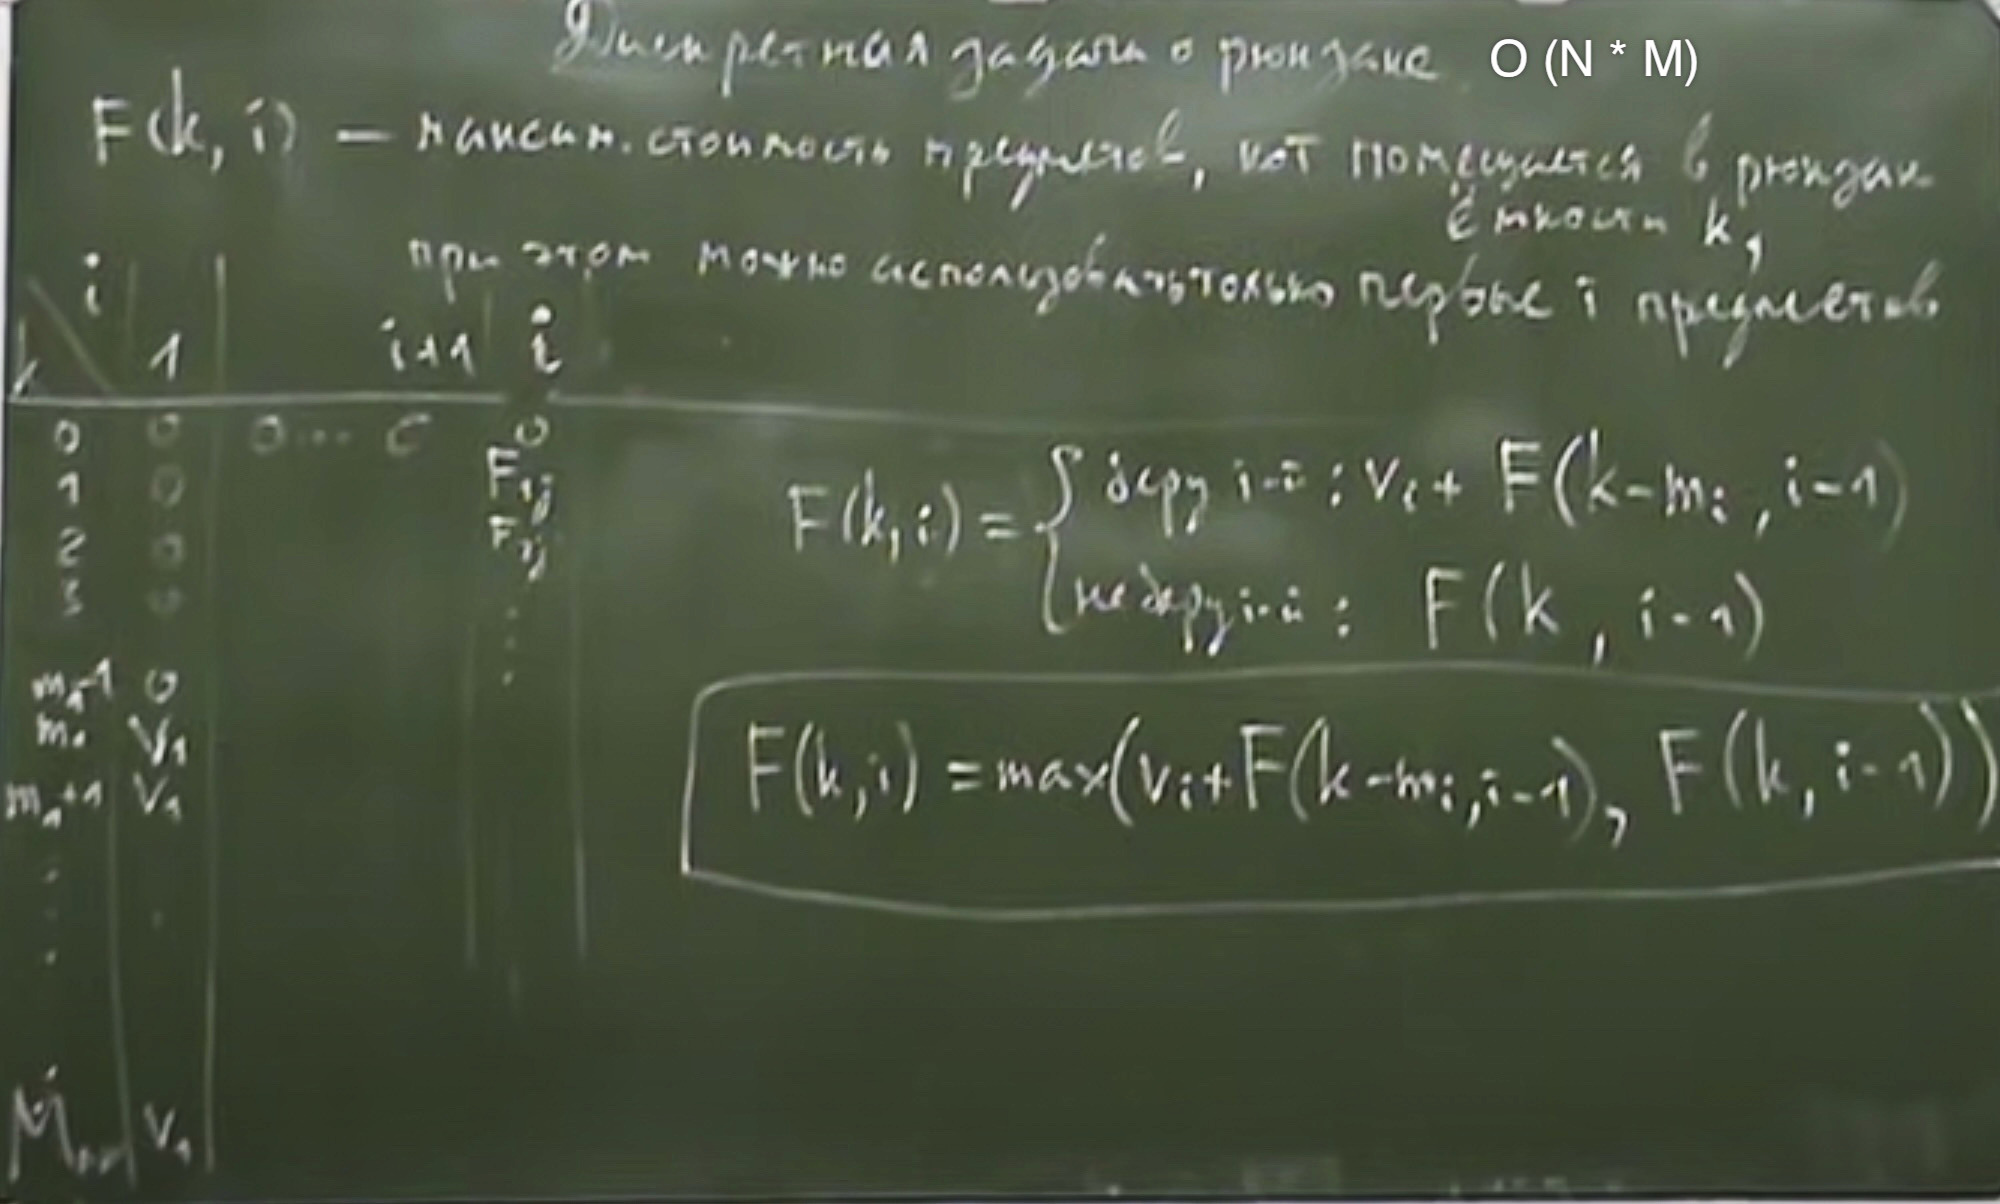 Дискретная задача о рюкзаке O (N * M)
F(k, i) — максим. стоимость предметов, кот помещается в рюкзак
ёмкости k,
при этом можно использовать только первые i предметов
i
k 1 i+1 i
0 0 0... 0
1 0 F1j
2 0 Fij
3 0
m1-1 0
m1 V1
m1+1 V1
V1
F(k,i) = { беру i-й : Vi + F(k-mi, i-1)
не беру i-й : F(k, i-1)
F(k,i) = max(Vi+F(k-mi,i-1), F(k,i-1))